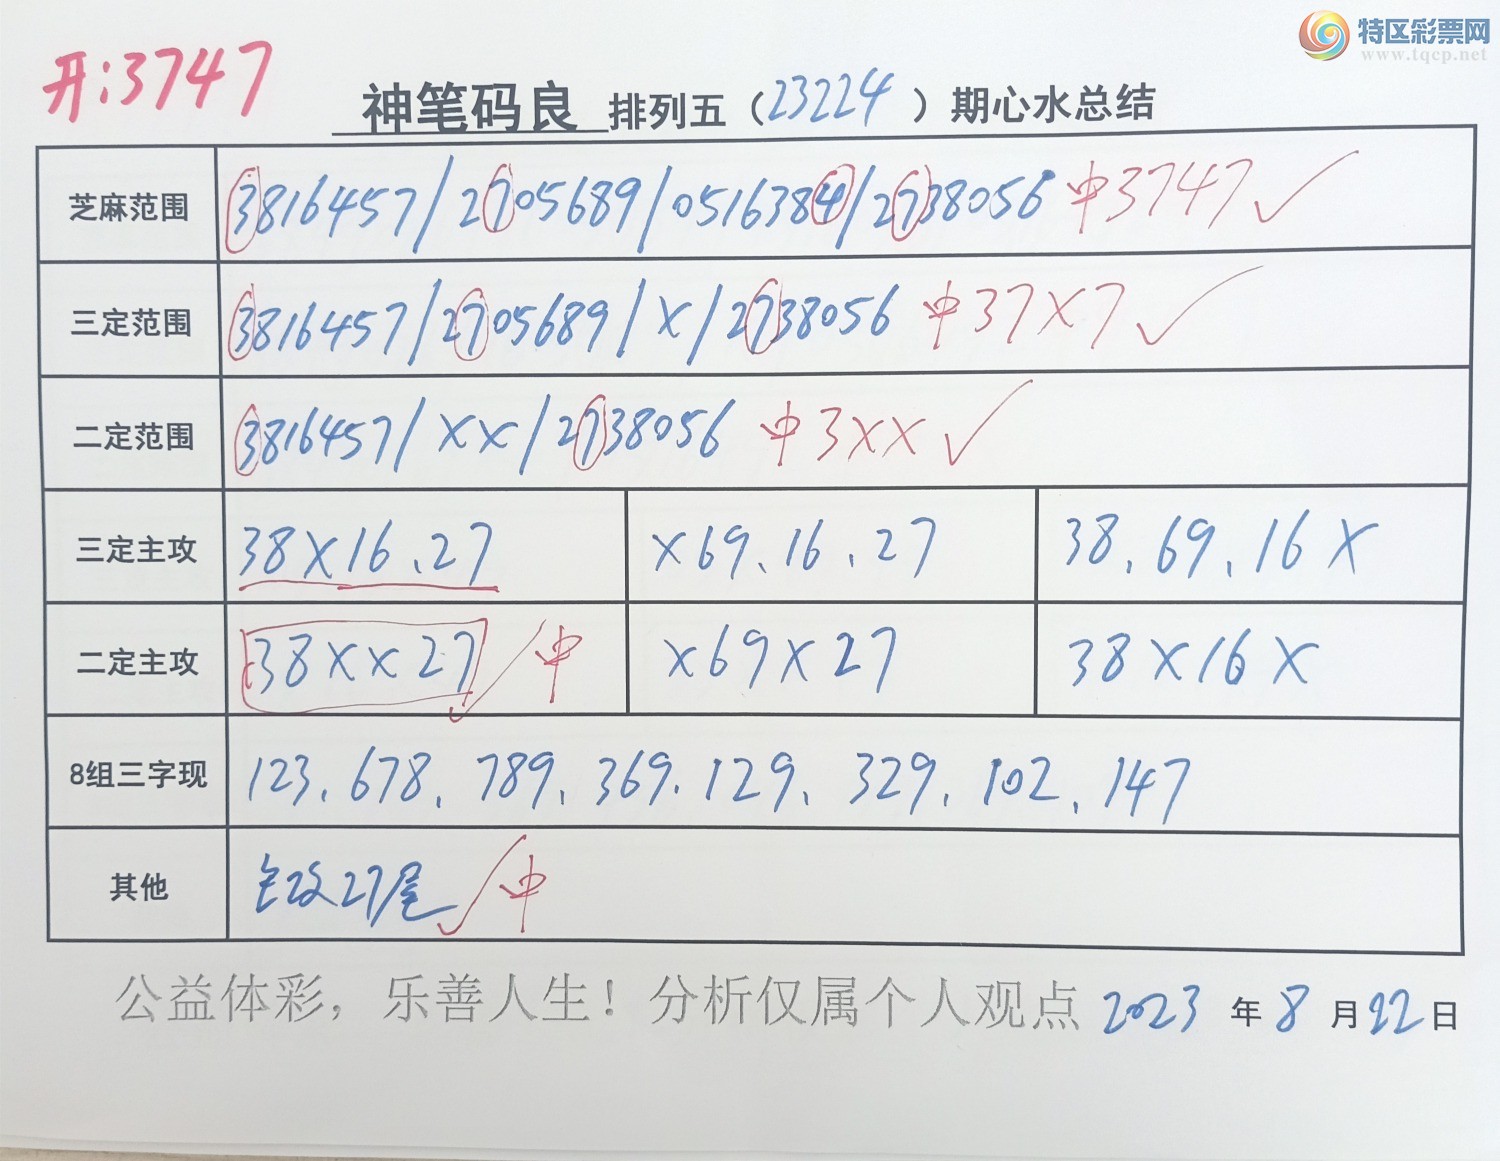 特区彩票网
www.tqcp.net
开:3747
神笔码良 排列五（23224）期心水总结
芝麻范围 3816457/2705689/0516384/2738056 中3747✓
三定范围 3816457/2705689/X/2738056 中37X7✓
二定范围 3816457/XX/2738056 中3XX✓
三定主攻 38X16.27 X69.16.27 38.69.16X
二定主攻 38XX27✓中 X69X27 38X16X
8组三字现 123.678.789.369.129.329.102.147
其他 主攻27尾✓中
公益体彩，乐善人生！分析仅属个人观点 2023年8月22日